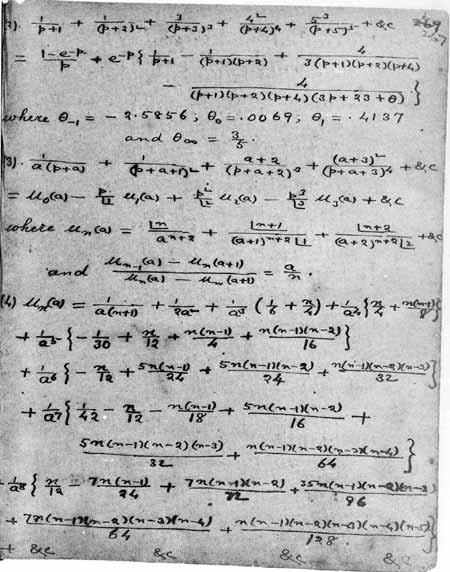 2). 1/(p+1) + 1/(p+2)² + 3/(p+3)³ + 4²/(p+4)⁴ + 5³/(p+5)⁵ + &c
= (1-e^-p)/p + e^-p { 1/(p+1) - 1/((p+1)(p+2)) + 4/(3(p+1)(p+2)(p+4))
- 4/((p+1)(p+2)(p+4)(3p+23+θ)) }
where θ₋₁ = -2.5856; θ₀ = .0069; θ₁ = .4137
and θ∞ = 3/5.
3). 1/(a(p+a)) + 1/(p+a+1)² + (a+2)/(p+a+2)³ + (a+3)²/(p+a+3)⁴ + &c
= u₀(a) - p/⌊1 u₁(a) + p²/⌊2 u₂(a) - p³/⌊3 u₃(a) + &c
where uₙ(a) = ⌊n/aⁿ⁺² + ⌊n+1/((a+1)ⁿ⁺²⌊1) + ⌊n+2/((a+2)ⁿ⁺²⌊2) + &c
and (uₙ₋₁(a) - uₙ(a+1))/(uₙ(a) - uₙ(a+1)) = a/n.
(4) uₙ(a) = 1/(a(n+1)) + 1/2a² + 1/a³ (1/6 + n/4) + 1/a⁴ { n/4 + n(n-1)/8 }
+ 1/a⁵ { -1/30 + n/12 + n(n-1)/4 + n(n-1)(n-2)/16 }
+ 1/a⁶ { -n/12 + 5n(n-1)/24 + 5n(n-1)(n-2)/24 + n(n-1)(n-2)(n-3)/32 }
+ 1/a⁷ { 1/42 - n/12 - n(n-1)/18 + 5n(n-1)(n-2)/16 +
5n(n-1)(n-2)(n-3)/32 + n(n-1)(n-2)(n-3)(n-4)/64 }
+ 1/a⁸ { n/12 - 7n(n-1)/24 + 7n(n-1)(n-2)/72 + 35n(n-1)(n-2)(n-3)/96
+ 7n(n-1)(n-2)(n-3)(n-4)/64 + n(n-1)(n-2)(n-3)(n-4)(n-5)/128 }
+ &c &c &c &c